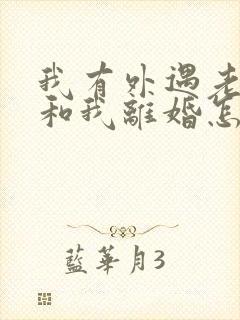 我有外遇老
和我離婚怎
藍華月3